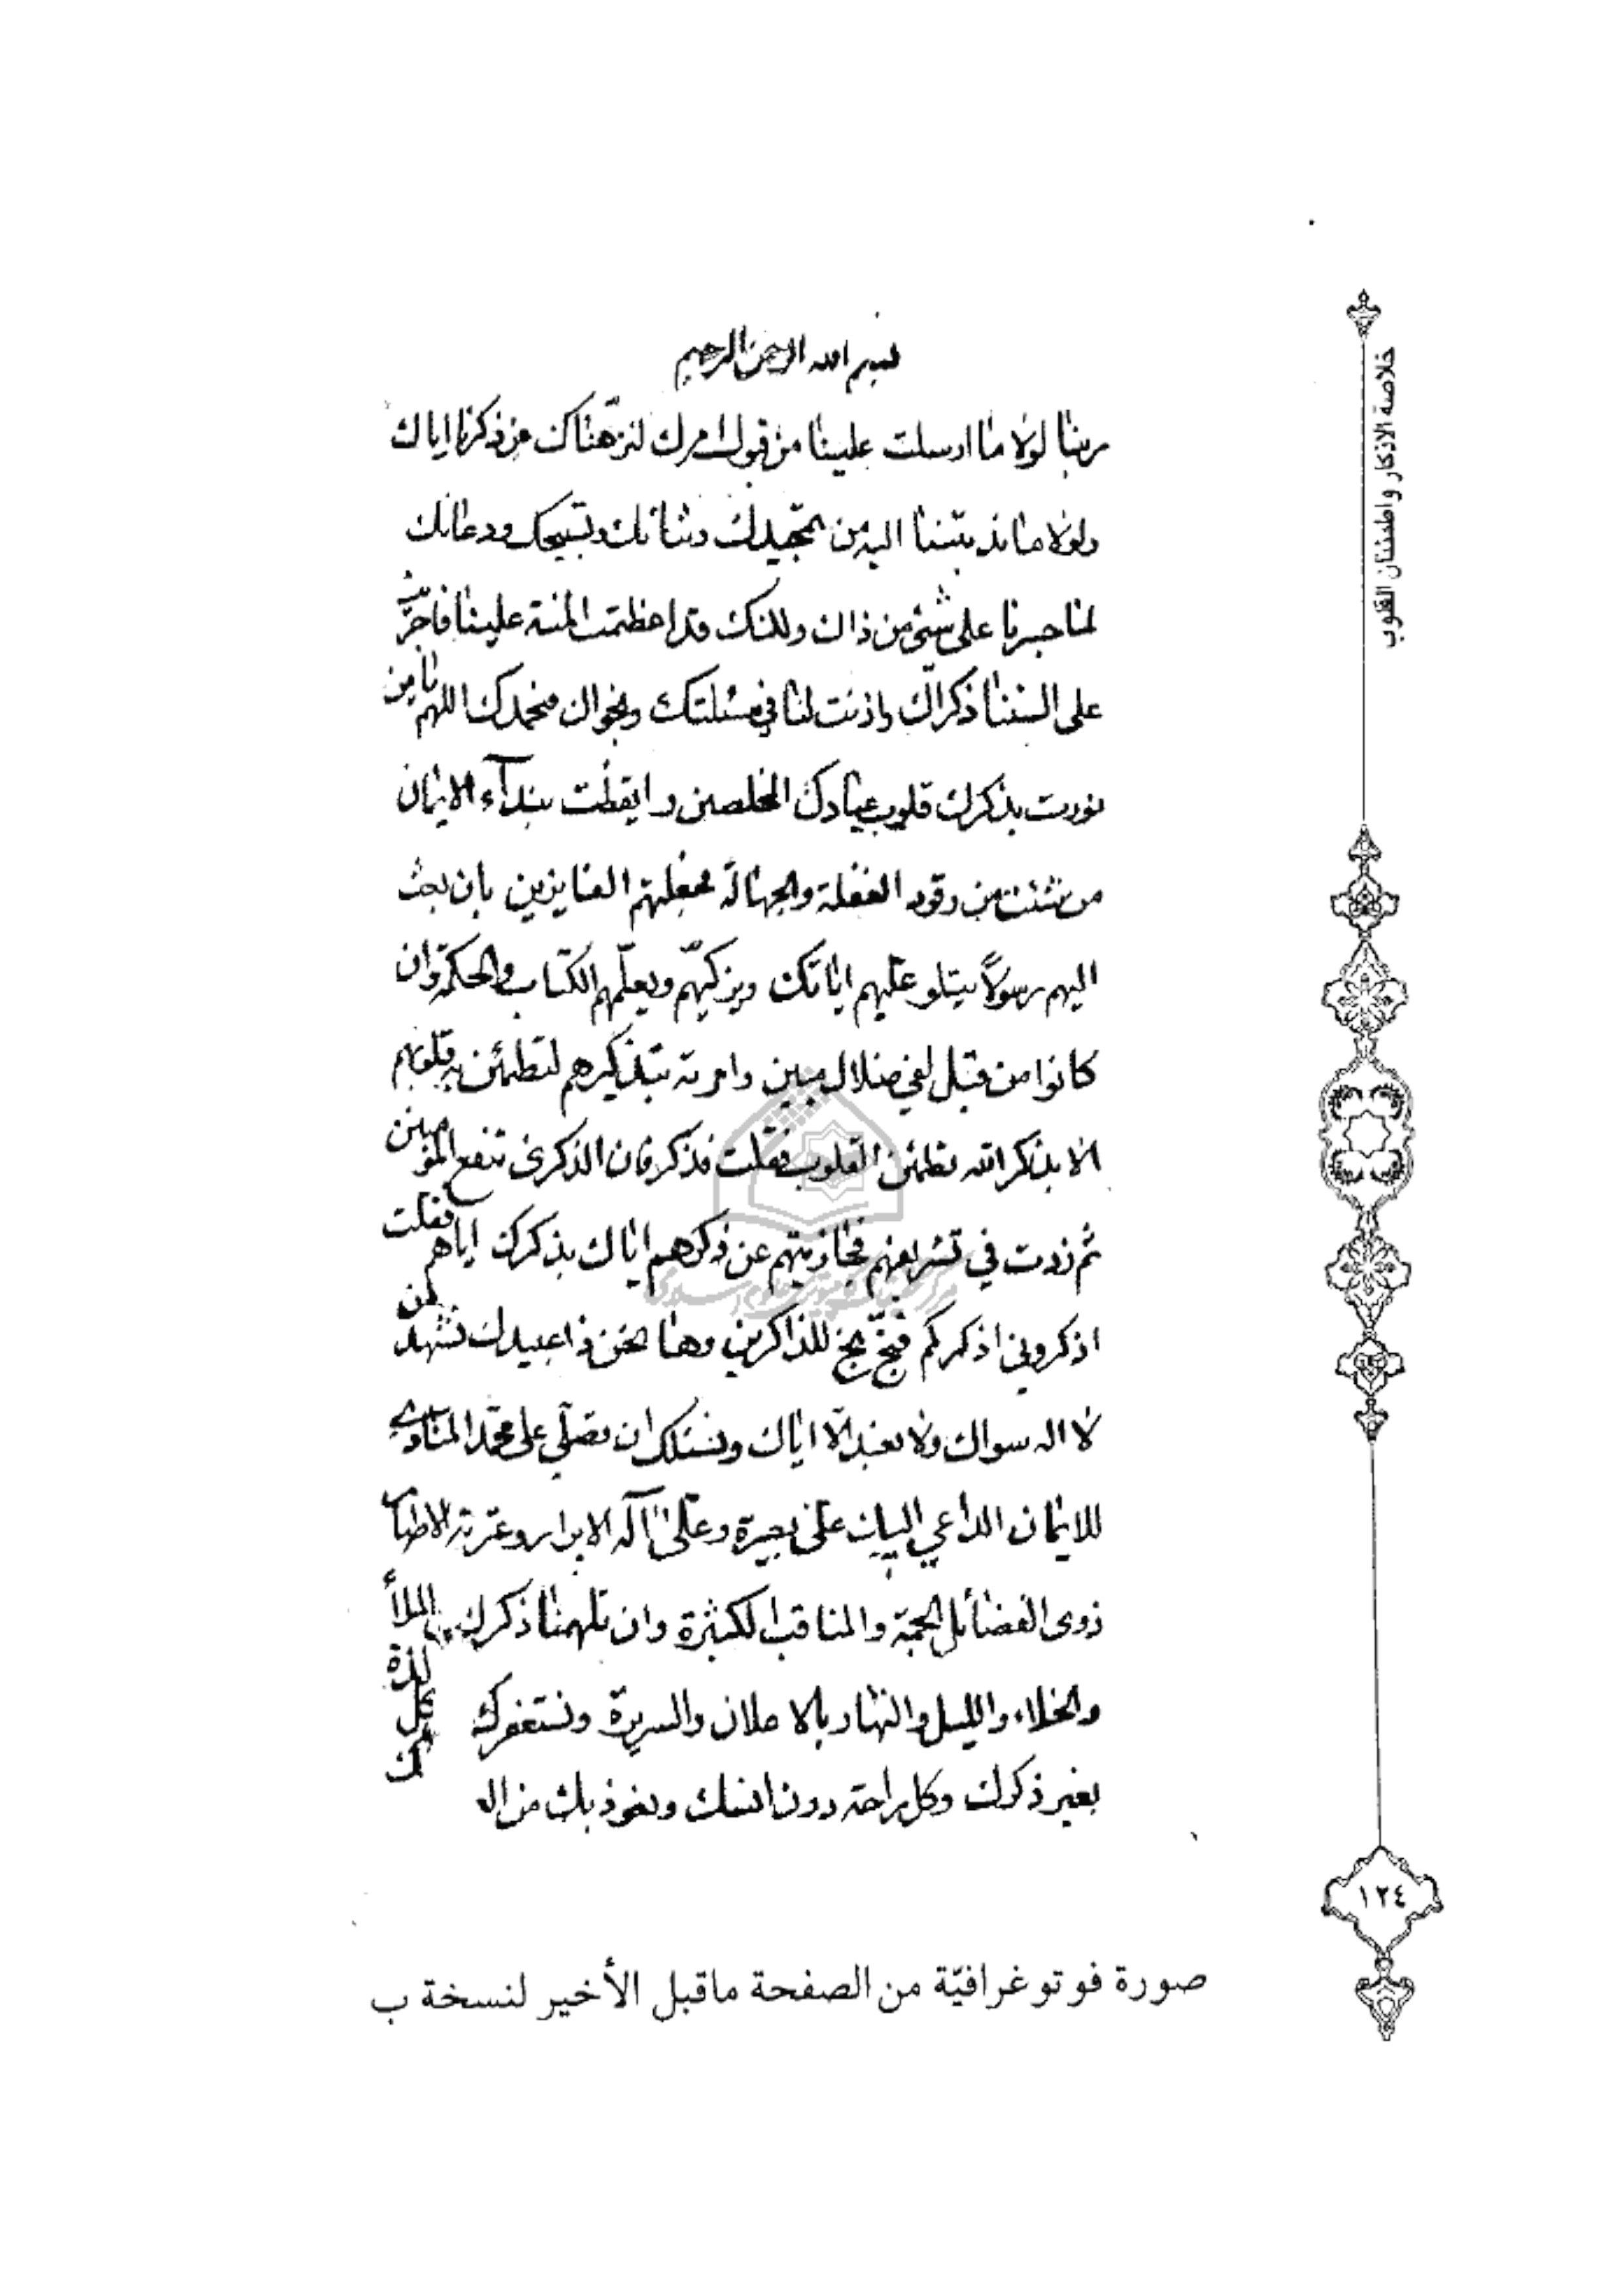 بسم الله الرحمن الرحيم
ربنا لولا ما ارسلت علينا من قبول امرك لنزّهناك عن ذكرنا اياك
ولولا ما ندبتنا اليه من تمجيدك وثنائك وتسبيحك ودعائك
لما جسرنا على شئ من ذاك ولكنك قد اعظمت المنة علينا فاجريت
على السنتنا ذكراك واذنت لنا في مسئلتك ونجواك فنحمدك اللهم يا من
نورت بذكرك قلوب عبادك المخلصين وايقظت بندآء الايمان
من شئت من رقود الغفلة والجهالة فجعلتهم الفايزين بان بعث
اليهم رسولاً يتلو عليهم اياتك ويزكيّهم ويعلّمهم الكتاب والحكمة وان
كانوا من قبل لفي ضلال مبين وامرته بتذكيرهم لتطمئن به قلوبهم
الا بذكر الله تطمئن القلوب فقلت فذكر فان الذكرى تنفع المؤمنين
ثم زدت في تشريفهم فجازيتهم عن ذكرهم اياك بذكرك اياهم فقلت
اذكروني اذكركم فبخّ بخ للذاكرين وها نحن ذا عبيدك نشهد ان
لا اله سواك ولا نعبد الّا اياك ونسئلك ان تصلّي على محمّد المنادي
للايمان الداعي اليك على بصيرة وعلى آله الابرار وعترته الاطياب
ذوى الفضائل الجمة والمناقب الكثيرة وان تلهمنا ذكرك في الملأ
والخلاء والليل والنهار بالاعلان والسريرة ونستغفرك
لكل لذة
بغير ذكرك وكل راحة دون انسك ونعوذ بك من ال
صورة فوتوغرافيّة من الصفحة ماقبل الأخير لنسخة ب
خلاصة الاذكار واطمئنان القلوب
١٢٤